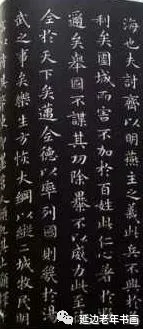 海也夫討齊以明燕主之義此兵不興於
利矣圍城而害不加於百姓此仁心著於
邇矣舉國不謀其功除暴不以威力此至
全於天下矣邁全德以率列國則幾於湯
武之事矣樂生方恢大綱以縱二城牧民明
延边老年书画